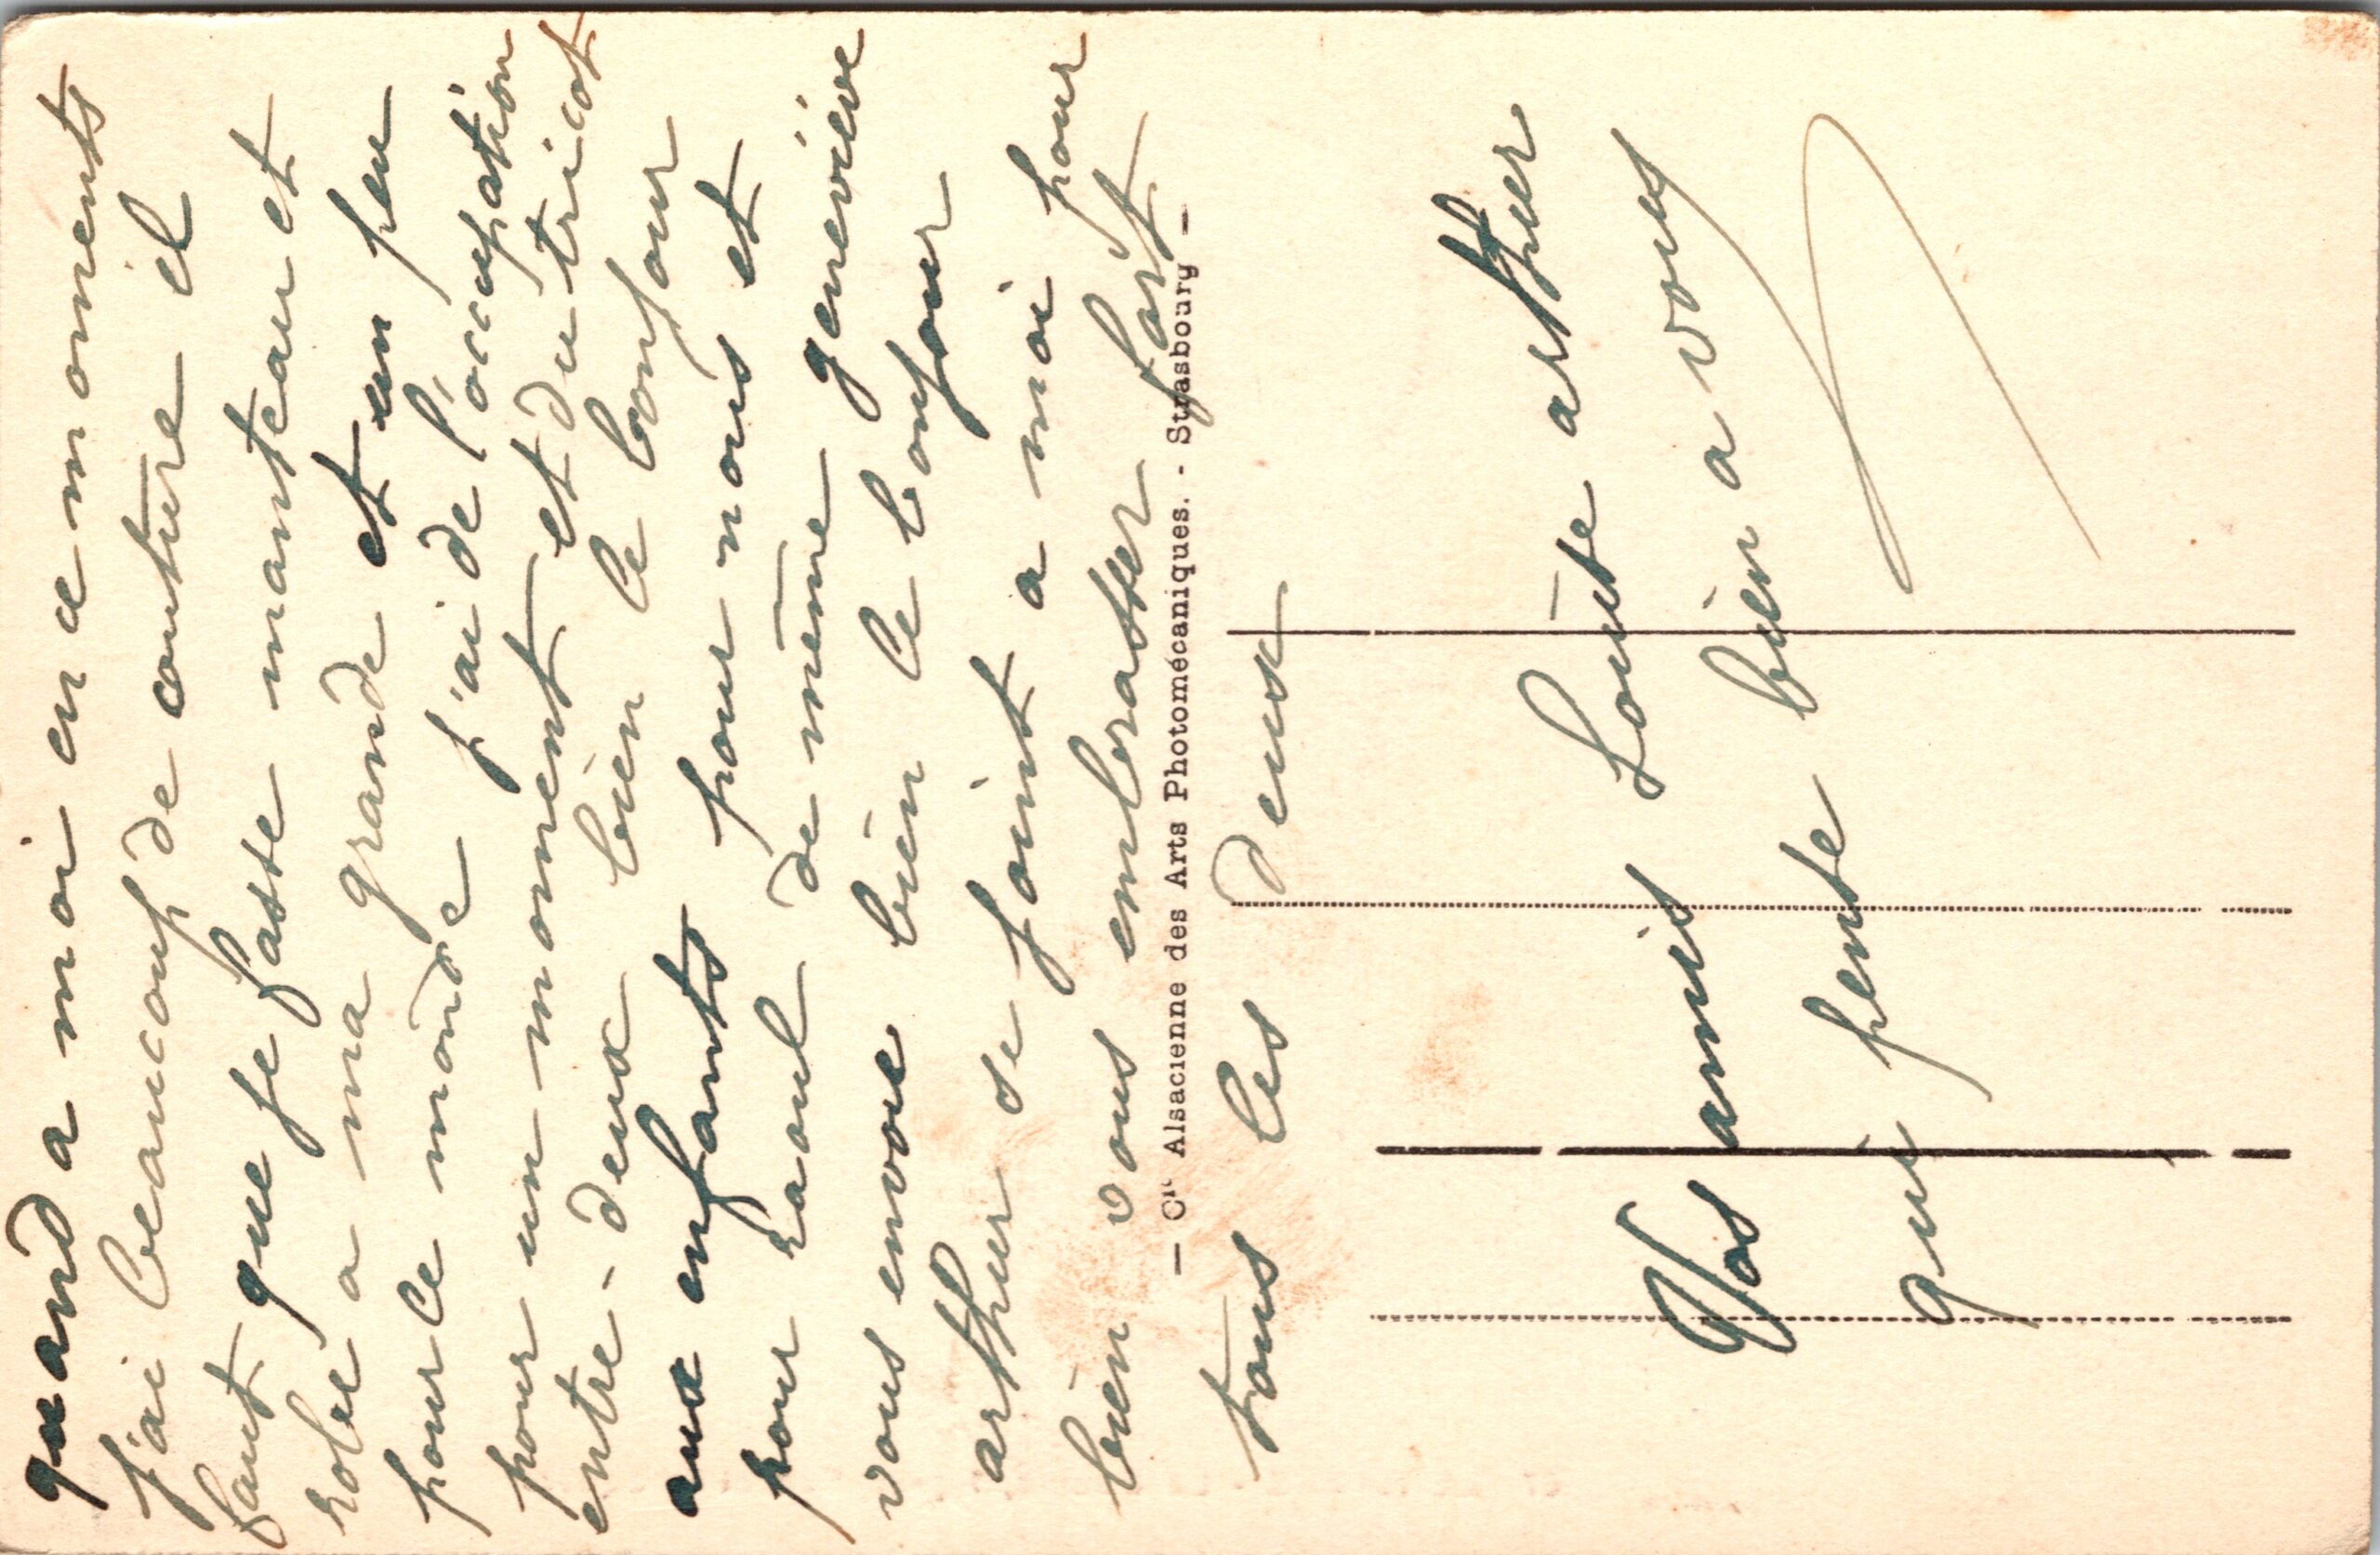 quand a moi en ce moments
j'ai beaucoup de couture il
faut que je fasse manteau et
robe a ma grande et un peu
pour le monde j'ai de l'occupation
pour un moment et du tricot
entre-deux bien le bonjour
aux enfants pour nous et
pour raoul de même geneviève
vous envoie bien le bonjour
arthur se joint a moi pour
bien vous embrasser fort
— Cie Alsacienne des Arts Photomécaniques. - Strasbourg —
tous les deux
Vos amis Louise arthur
qui pense bien a vous